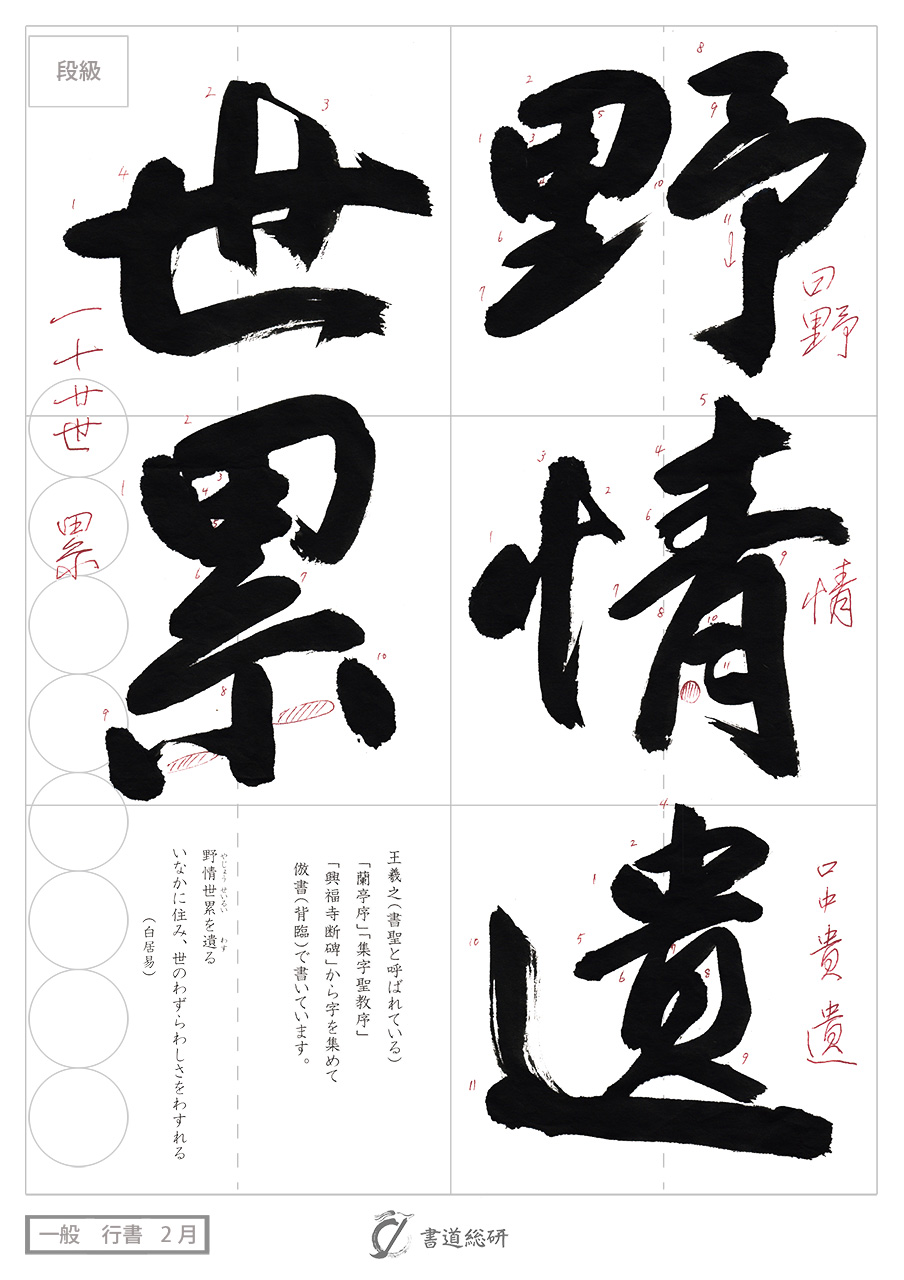 野情遺
世累
段級
田野
情
口中貴遺
一十廿世
累
王羲之(書聖と呼ばれている)
「蘭亭序」「集字聖教序」
「興福寺断碑」から字を集めて
倣書(背臨)で書いています。
野情世累を遺る
やじょう せいるい わす
いなかに住み、世のわずらわしさをわすれる
(白居易)
一般 行書 2月
書道総研